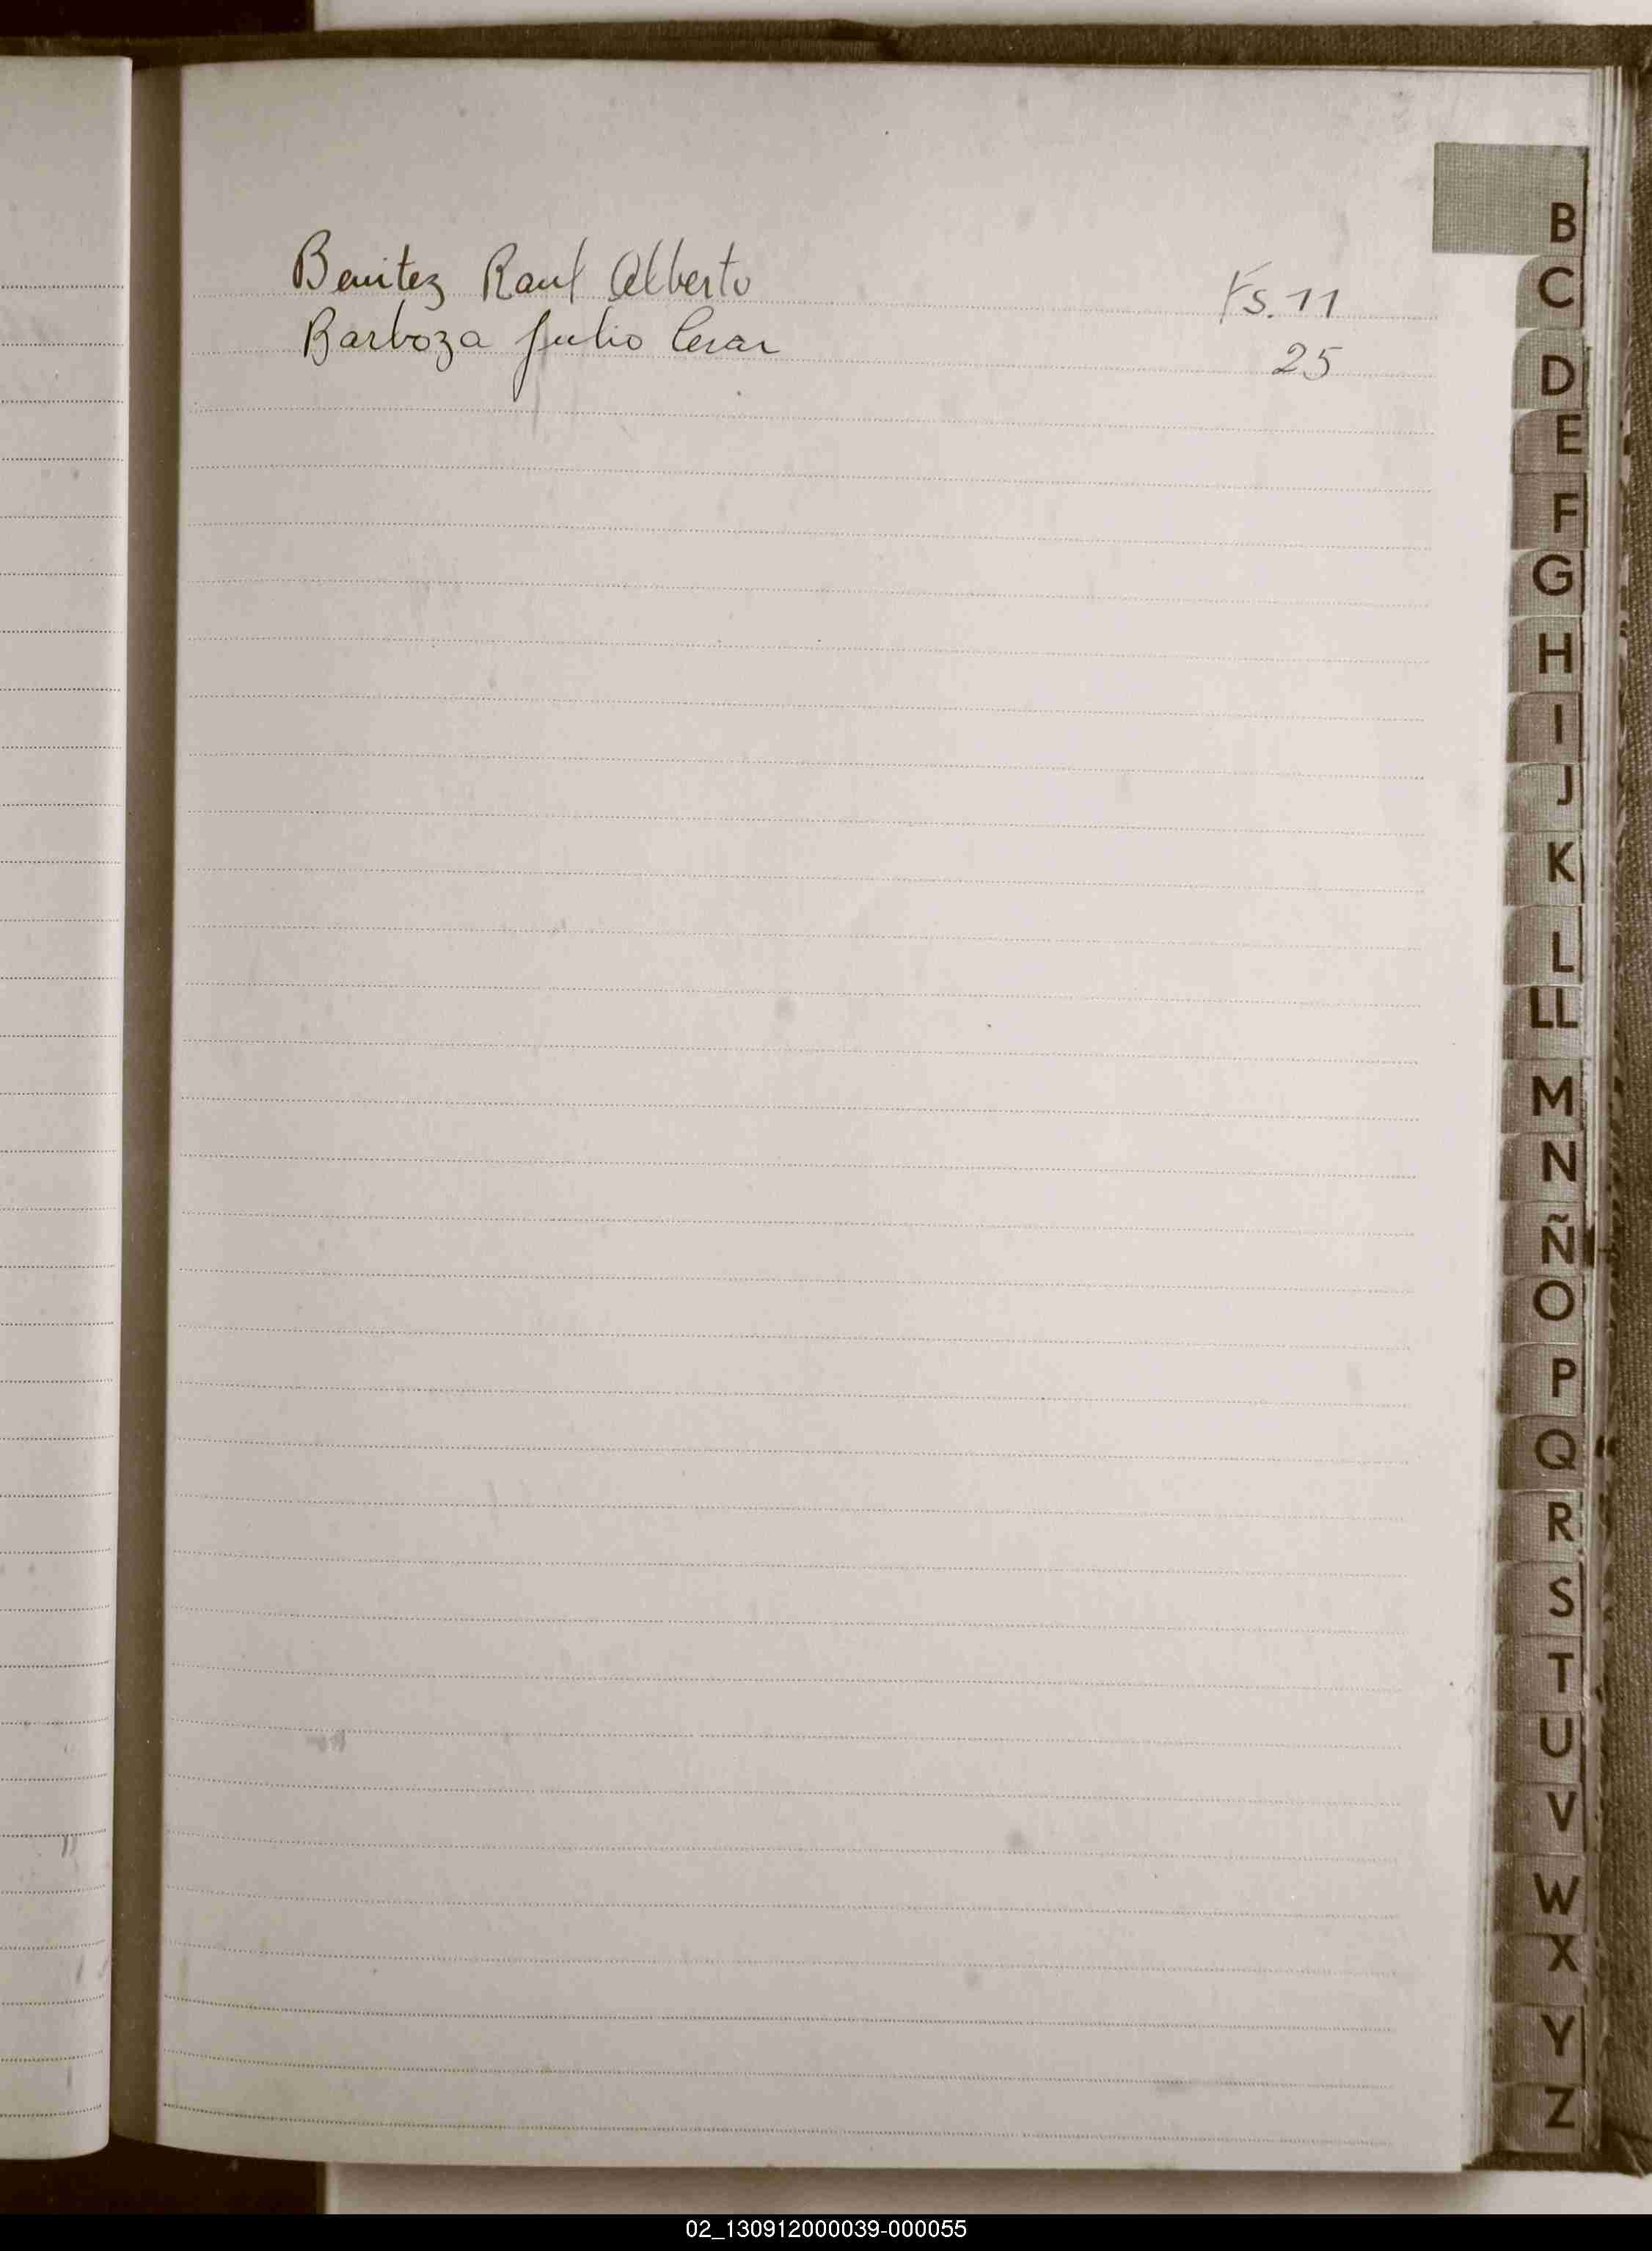 Benitez Raul Alberto Fs. 11
Barboza Julio Cesar 25
B
C
D
E
F
G
H
I
J
K
L
LL
M
N
Ñ
O
P
Q
R
S
T
U
V
W
X
Y
Z
02_130912000039-000055